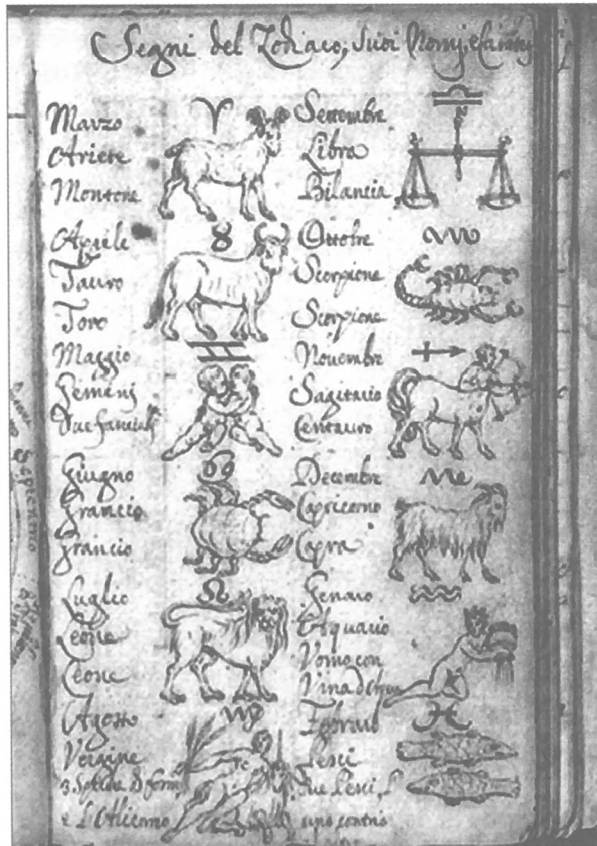 Segni del Zodiaco, Suoi Nomi, e
Marzo
Ariete
Montone
Aprile
Tauro
Toro
Maggio
Gemini
Due fanciulli
Giugno
Grancio
Grancio
Luglio
Leone
Leone
Agosto
Vergine
3 Spiche di
e L'Alicorno
Settembre
Libra
Bilancia
Ottobre
Scorpione
Scorpione
Novembre
Sagitario
Centauro
Decembre
Capricorno
Capra
Genaro
Aquario
Vomo con
Vina d'
Febraio
Pesci
Due Pesci, L'
uno contro